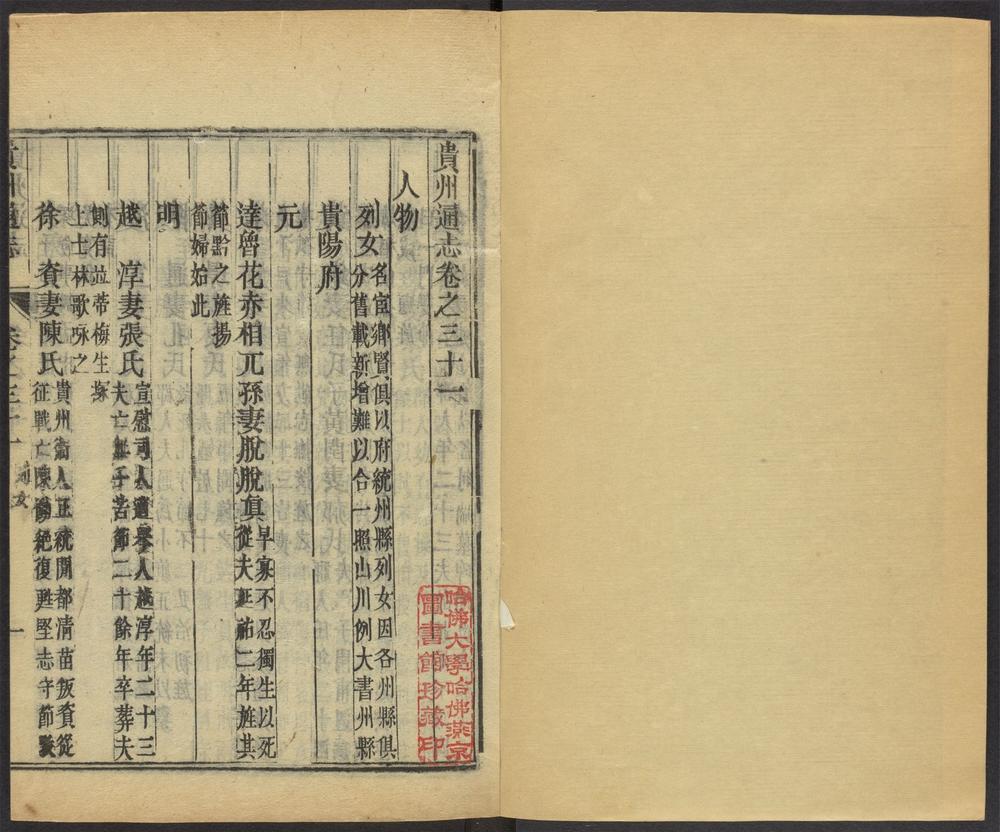 貴州通志卷之三十一
人物
列女名宦鄉賢俱以府統州縣列女因各州縣俱
分舊載新增難以合一照山川例大書州縣
貴陽府
元
達魯花赤相兀孫妻脫脫真早寡不忍獨生以死
從夫延祐二年旌其
節黔之旌揚
節婦始此
明
越淳妻張氏宣慰司人適舉人越淳年二十三
夫亡無子苦節二十餘年卒葬夫
側有竝蒂梅生塚
上士林歌咏之
徐資妻陳氏貴州衛人正統間都清苗叛資從
征戰亡陳慟絕復甦堅志守節
貴州通志
卷之三十一
列女
一
哈佛大學哈佛燕京
圖書館珍藏印